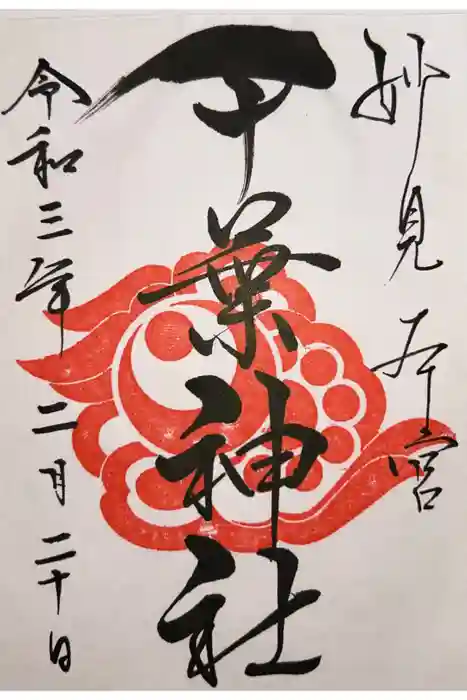 妙見本宮
千葉神社
令和三年二月二十日